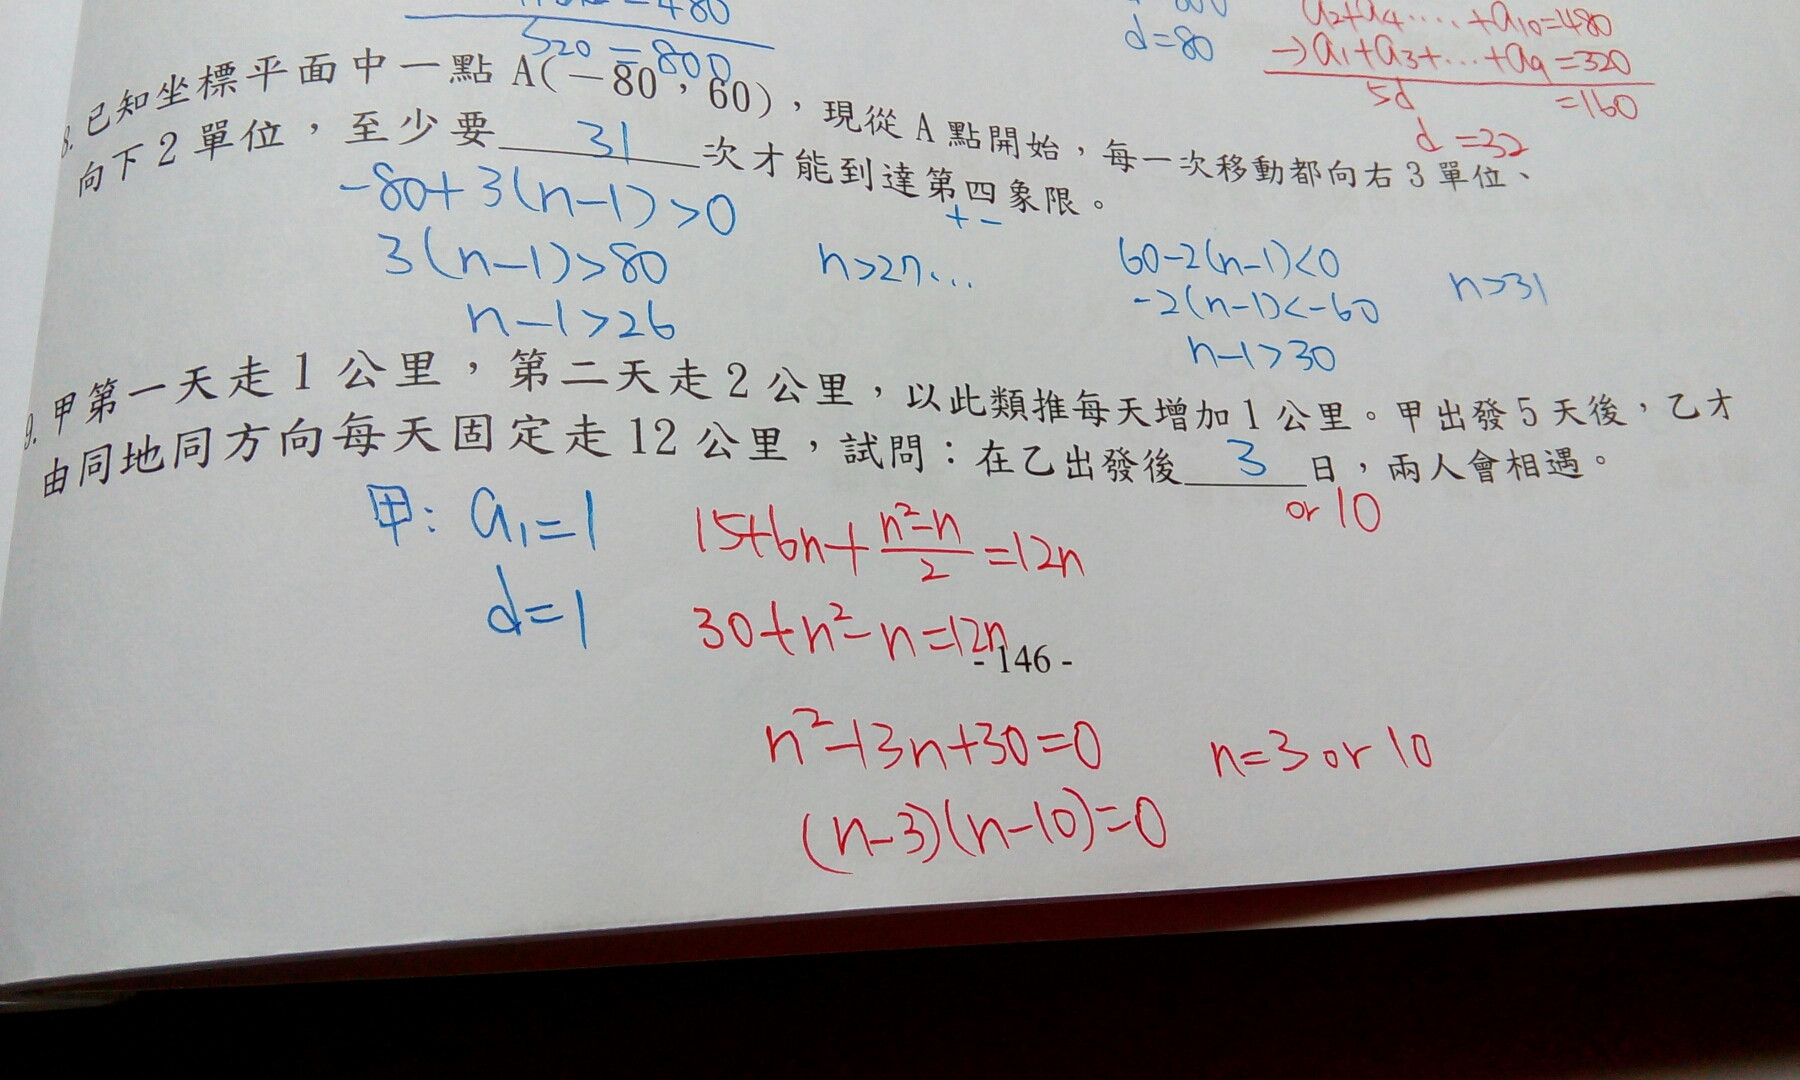 =480
520=800
d=80
a2+a4····+a10=480
→a1+a3+···+a9=320
5d =160
d=32
8. 已知坐標平面中一點 A(－80，60)，現從 A 點開始，每一次移動都向右 3 單位、
向下 2 單位，至少要 31 次才能到達第四象限。
+ -
-80+3(n-1)>0
3(n-1)>80
n-1>26
n>27...
60-2(n-1)<0
-2(n-1)<-60
n-1>30
n>31
9. 甲第一天走 1 公里，第二天走 2 公里，以此類推每天增加 1 公里。甲出發 5 天後，乙才
由同地同方向每天固定走 12 公里，試問：在乙出發後 3 日，兩人會相遇。
or 10
甲: a1=1
d=1
15+6n+(n²-n)/2=12n
30+n²-n=12n
- 146 -
n²-13n+30=0
(n-3)(n-10)=0
n=3 or 10